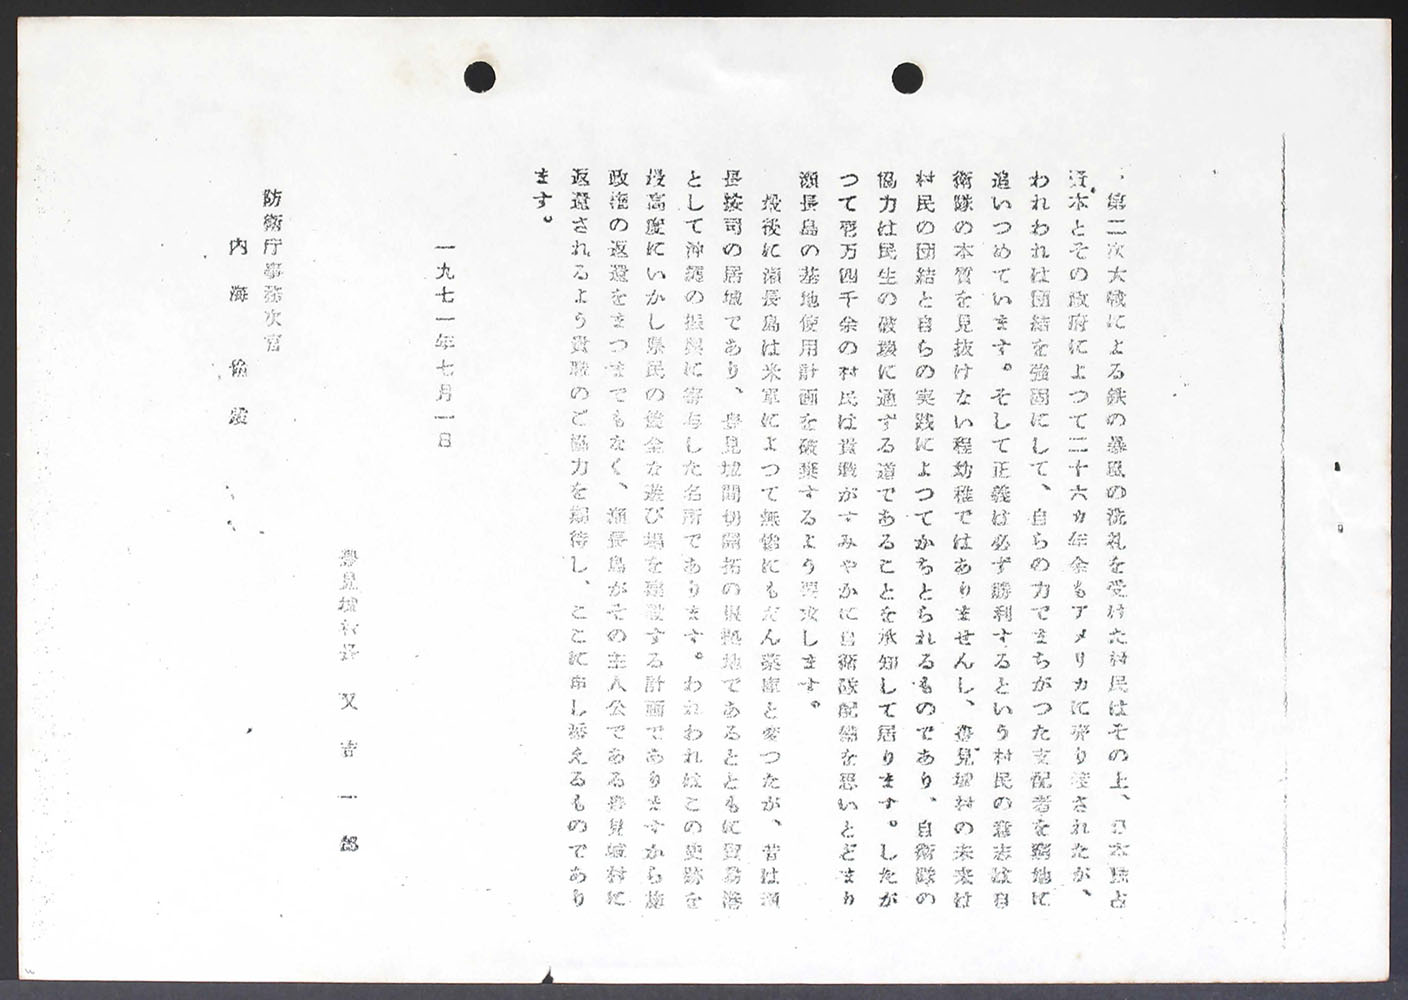 、第二次大戦による鉄の暴風の洗礼を受けた村民はその上、日本独占
資本とその政府によつて二十六カ年余もアメリカに売り渡されたが、
われわれは団結を強固にして、自らの力でまちがつた支配者を窮地に
追いつめています。そして正義は必ず勝利するという村民の意志は自
衛隊の本質を見抜けない程幼稚ではありませんし、豊見城村の未来は
村民の団結と自らの実践によつてかちとられるものであり、自衛隊の
協力は民生の破壊に通ずる道であることを承知して居ります。したが
つて壱万四千余の村民は貴職がすみやかに自衛隊配備を思いとどまり
瀬長島の基地使用計画を破棄するよう要求します。
最後に瀬長島は米軍によつて無惨にもだん薬庫と変つたが、昔は瀬
長按司の居城であり、豊見城間切開拓の根拠地であるとともに貿易港
として沖縄の振興に寄与した名所であります。われわれはこの史跡を
最高度にいかし県民の健全な遊び場を建設する計画でありますから施
政権の返還をまつまでもなく、瀬長島がその主人公である豊見城村に
返還されるよう貴職のご協力を期待し、ここに申し添えるものであり
ます。
一九七一年七月一日
豊見城村長 又吉一郎
防衛庁事務次官
内海 倫 殿